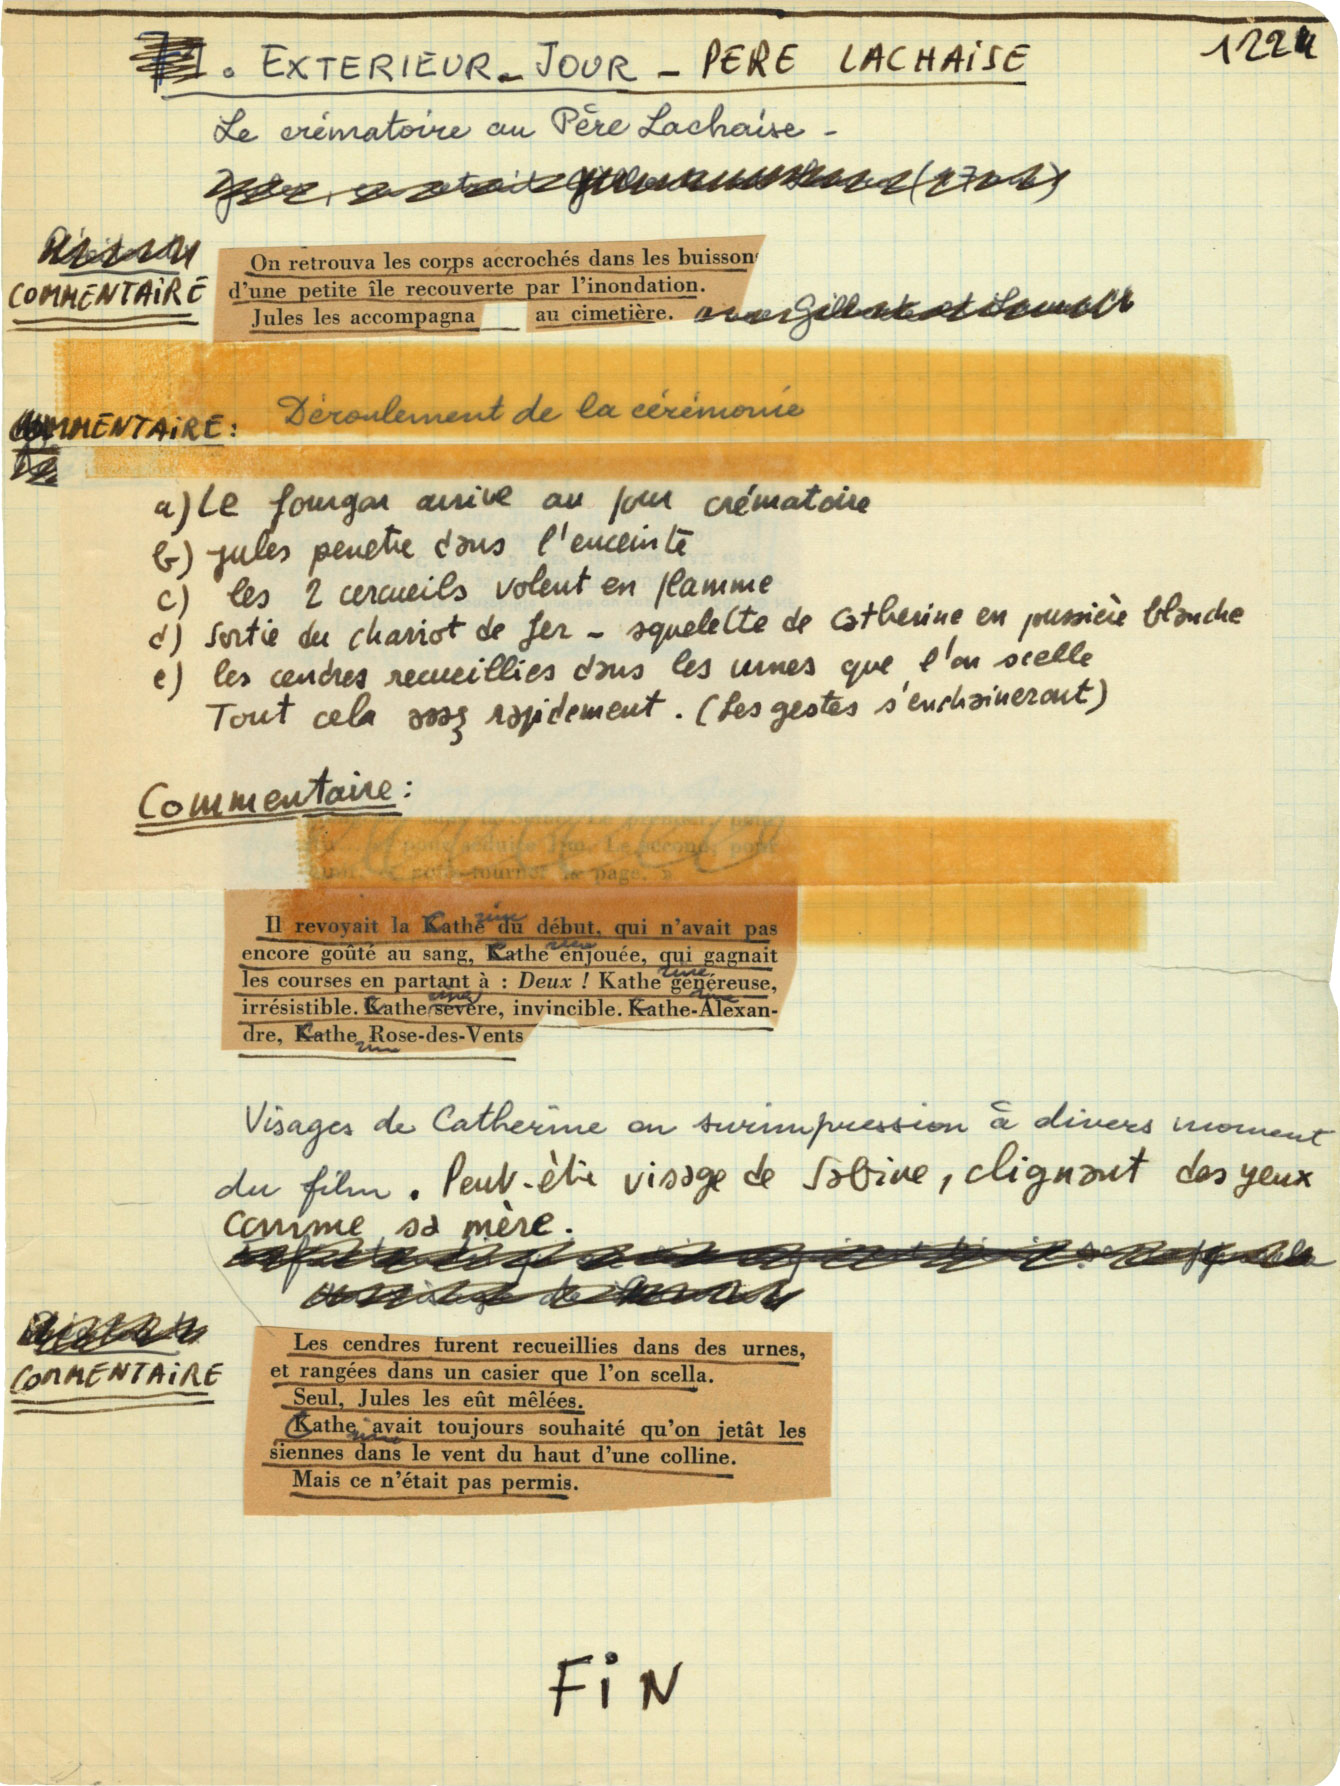 . EXTERIEUR_JOUR _ PERE LACHAISE
Le crématoire au Père Lachaise -
COMMENTAIRE
On retrouva les corps accrochés dans les buissons
d'une petite île recouverte par l'inondation.
Jules les accompagna au cimetière.
COMMENTAIRE :
Déroulement de la cérémonie
a) Le fourgon arrive au four crématoire
b) Jules penetre dans l'enceinte
c) les 2 cercueils volent en flamme
d) sortie du chariot de fer _ squelette de Catherine en pussière blanche
e) les cendres recueillies dans les urnes que l'on scelle
Tout cela assez rapidement. (Les gestes s'enchaineront)
Commentaire :
pour séduire Jim. Le second, pour
tourner la page. »
Il revoyait la Catherine du début, qui n'avait pas
encore goûté au sang, Katherine enjouée, qui gagnait
les courses en partant à : Deux ! Katherine généreuse,
irrésistible. Catherine sévère, invincible. Katherine-Alexan-
dre, Katherine Rose-des-Vents
Visages de Catherine en surimpression à divers moment
du film. Peut-être visage de Sabine, clignant des yeux
comme sa mère.
COMMENTAIRE
Les cendres furent recueillies dans des urnes,
et rangées dans un casier que l'on scella.
Seul, Jules les eût mêlées.
Catherine avait toujours souhaité qu'on jetât les
siennes dans le vent du haut d'une colline.
Mais ce n'était pas permis.
FiN